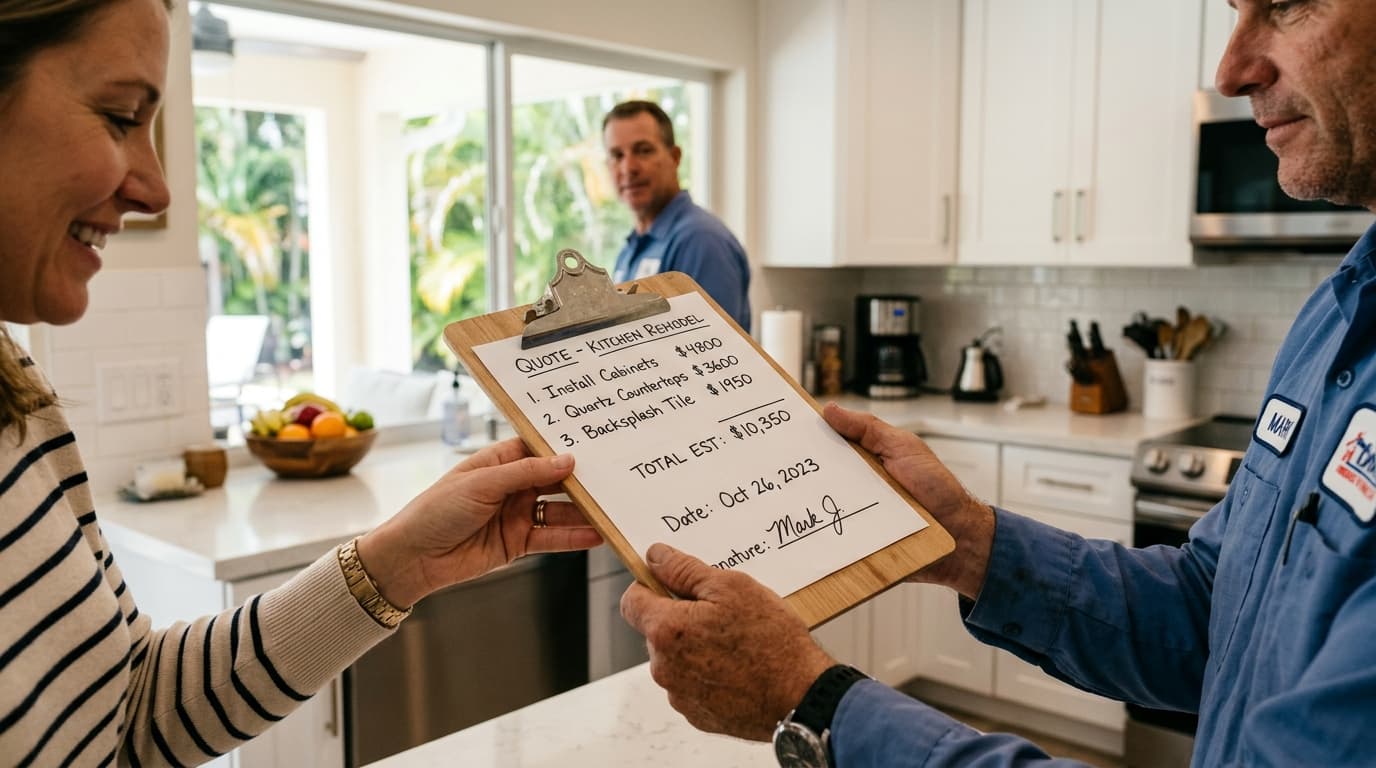 QUOTE - KITCHEN REMODEL
1. Install Cabinets $4800
2. Quartz Countertops $3600
3. Backsplash Tile $1950
TOTAL EST: $10,350
Date: Oct 26, 2023
nature: Mark J.
MARK